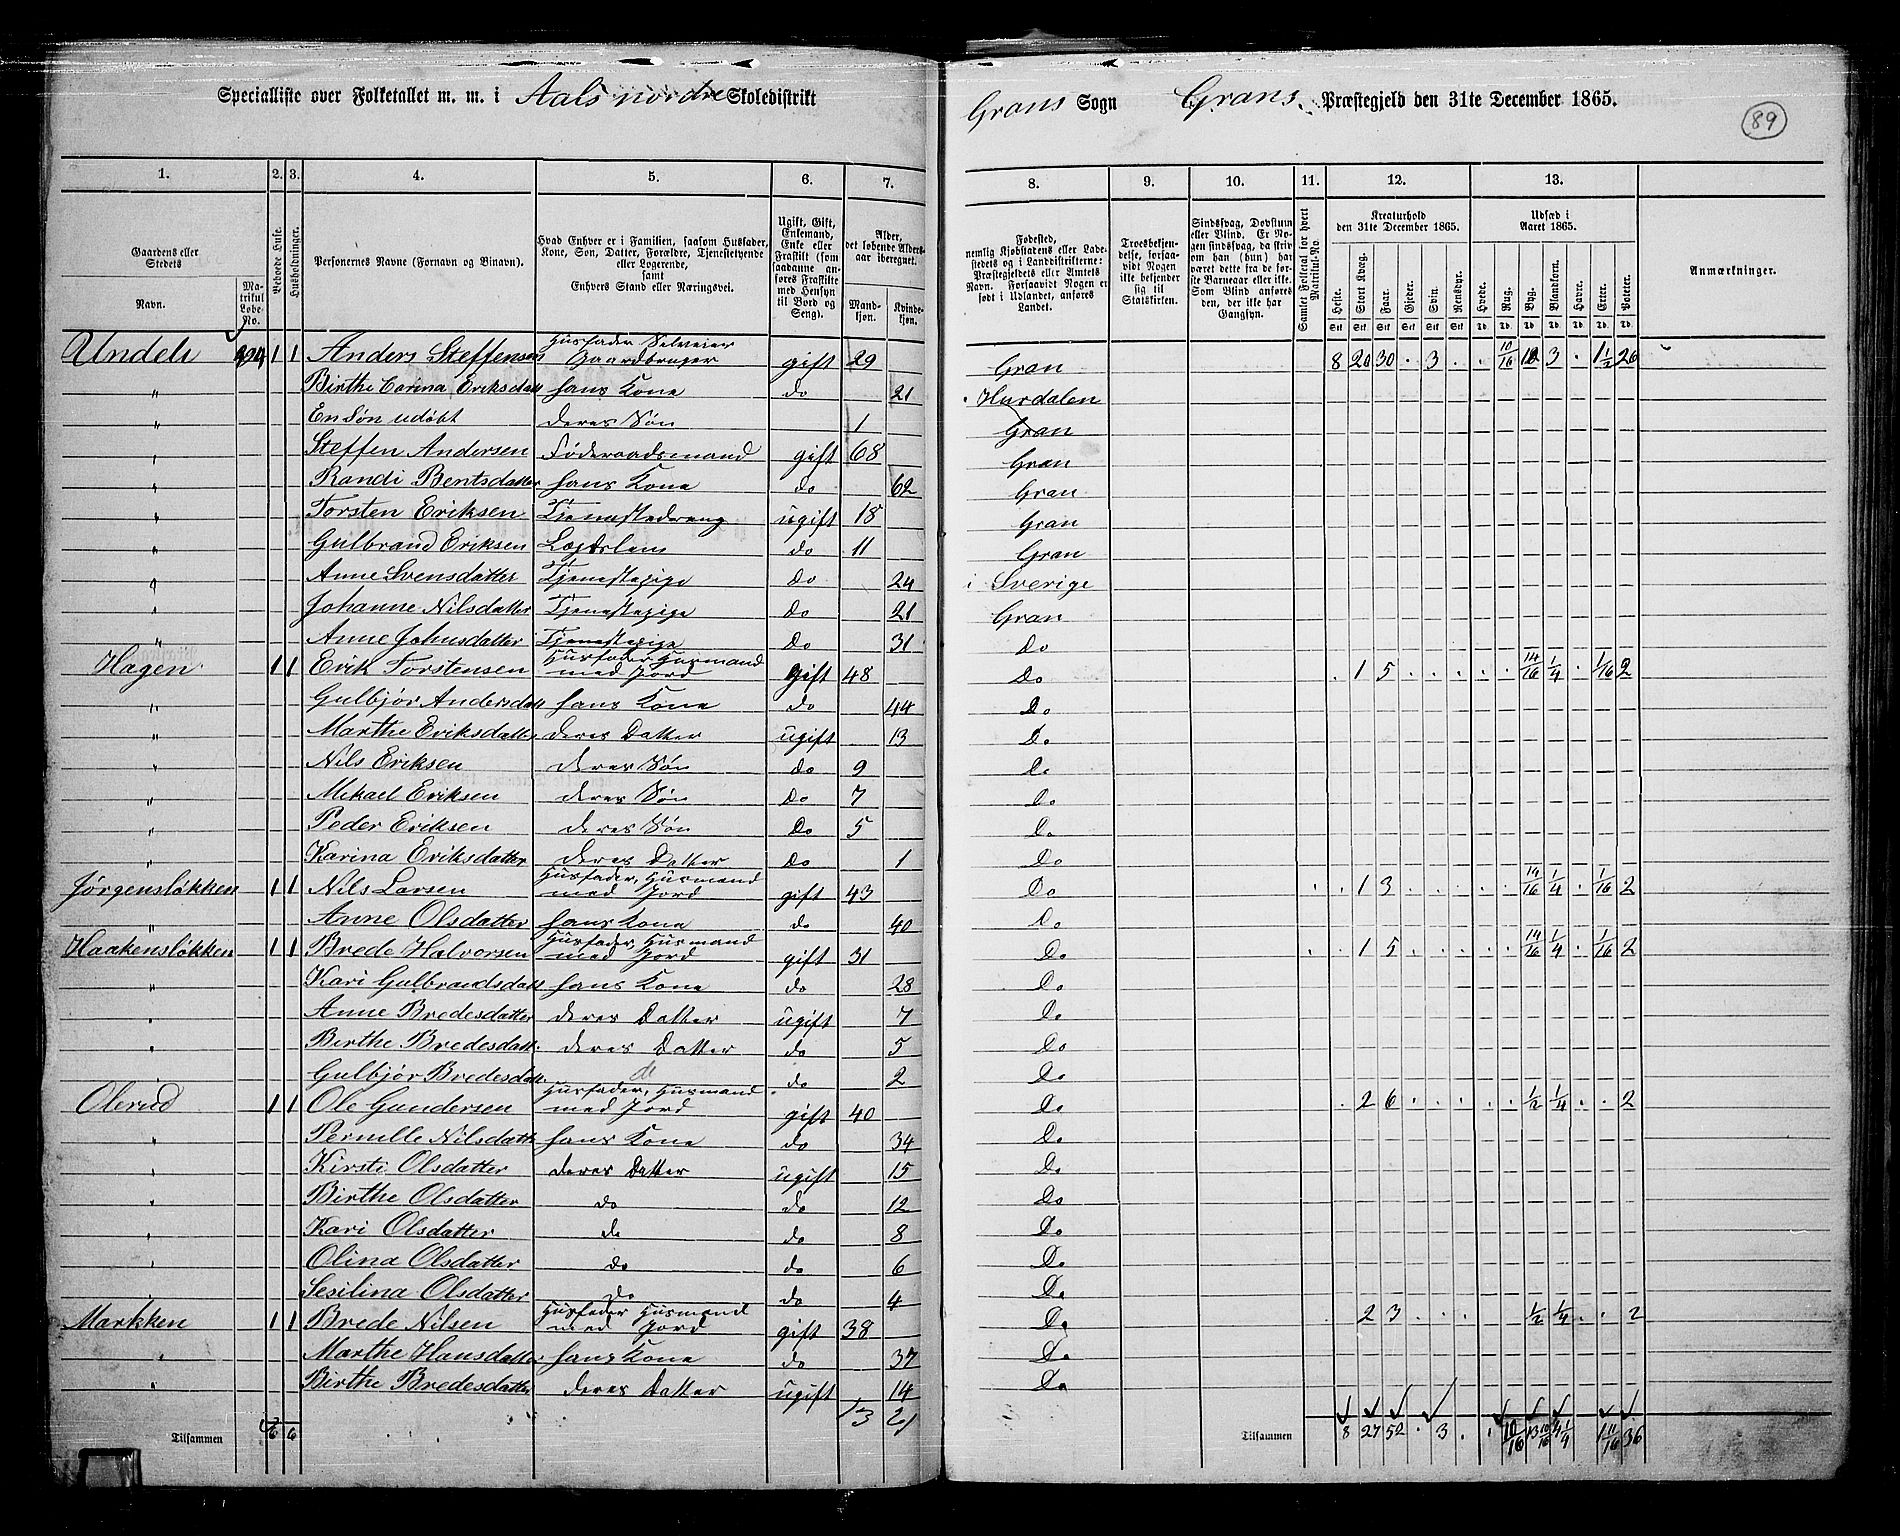 Specialliste over Folketallet m. m. i Aals nordre Skoledistrikt Grans Sogn Grans Præstegjeld den 31te December 1865.
89
1. 2. 3. 4. 5. 6. 7. 8. 9. 10. 11. 12. 13.
Gaardens eller Stedets
Navn.
Matrikul Løbe-No.
Beboede Huse.
Husholdninger.
Personernes Navne (Fornavn og Binavn).
Hvad Enhver er i Familien, saasom Husfader, Kone, Søn, Datter, Forældre, Tjenestetyende eller Logerende, samt Enhvers Stand eller Næringsvei.
Ugift, Gift, Enkemand, Enke eller Fraskilt (som saadanne anføres Fraskilte med Hensyn til Bord og Seng).
Alder, det løbende Aldersaar iberegnet.
Mandkjøn.
Kvindekjøn.
Fødested, nemlig Kjøbstadens eller Ladestedets og i Landdistrikterne: Præstegjeldets eller Amtets Navn. Forsaavidt Nogen er født i Udlandet, anføres Landet.
Troesbekjendelse, forsaavidt Nogen ikke bekjender sig til Statskirken.
Sindssvag, Døvstum eller Blind. Er Nogen sindssvag, da skrives om han (hun) har været dette fra de første Barneaar eller ikke. Som Blind anføres den, der ikke har Gangsyn.
Samlet Folketal for hvert Matrikul-No.
Kreaturhold den 31te December 1865.
Heste. Stort Kvæg. Faar. Gjeder. Svin. Rensdyr.
Udsæd i Aaret 1865.
Hvede. Rug. Byg. Blandkorn. Havre. Erter. Poteter.
Anmærkninger.
Undeli 1 1 Anders Steffensen Husfader Selveier Gaardbruger gift 29 Gran 8 20 30 . 3 . . 10/16 12 3 . 1 1/2 26
" Birthe Carina Eriksdatt hans Kone do 21 Hurdalen
" En Søn udøbt deres Søn 1 Gran
" Steffen Andersen Føderaadsmand gift 68 Gran
" Randi Bentsdatter hans Kone do 62 Gran
" Torsten Eriksen Tjenestedreng ugift 18 Gran
" Gulbrand Eriksen Lægdslem do 11 Gran
" Anne Svensdatter Tjenestepige do 24 i Sverige
" Johanne Nilsdatter Tjenestepige do 21 Gran
" Anne Johnsdatter Tjenestepige do 31 Do
Hagen 1 1 Erik Torstensen Husfader Husmand med Jord gift 48 Do . 1 5 . . . . . 14/16 1/4 . 1/16 2
" Gulbjør Andersdatt hans Kone do 44 Do
" Marthe Eriksdatter deres Datter ugift 13 Do
" Nils Eriksen deres Søn do 9 Do
" Mikael Eriksen deres Søn do 7 Do
" Peder Eriksen deres Søn do 5 Do
" Karina Eriksdatter deres Datter do 1 Do
Jørgensløkken 1 1 Nils Larsen Husfader, Husmand med Jord gift 43 Do . . 1 3 . . . . . 14/16 1/4 . 1/16 2
" Anne Olsdatter hans Kone do 40 Do
Haakensløkken 1 1 Brede Halvorsen Husfader, Husmand med Jord gift 31 Do . . 1 5 . . . . . 14/16 1/4 . 1/16 2
" Kari Gulbrandsdatt hans Kone do 28 Do
" Anne Bredesdatter deres Datter ugift 7 Do
" Berthe Bredesdatt. deres Datter do 5 Do
" Gulbjør Bredesdatt do do 2 Do
Olerud 1 1 Ole Gundersen Husfader, Husmand med Jord gift 40 Do . 2 6 . . . . . 1/2 1/4 . . 2
" Pernille Nilsdatt hans Kone do 34 Do
" Kirsti Olsdatter deres Datter ugift 15 Do
" Birthe Olsdatter do do 12 Do
" Kari Olsdatter do do 8 Do
" Olina Olsdatter do do 6 Do
Sesilina Olsdatter do do 4 Do
Markken 1 1 Brede Nilsen Husfader Husmand med Jord gift 38 Do . 2 3 . . . 1/2 1/4 . 2
" Marthe Hansdatter hans Kone do 37 Do
" Birthe Bredesdatter deres Datter ugift 14 Do
Tilsammen 6 6 13 21 Tilsammen 8 27 52 . 3 . 10/16 13 10/16 4 1/4 1 11/16 36